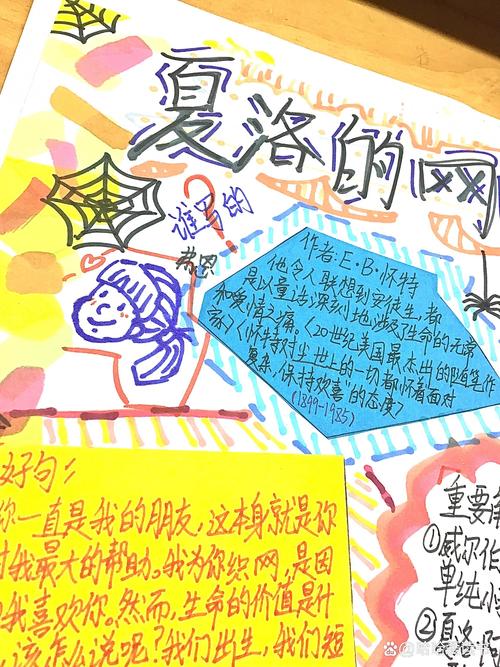 夏洛的网
谁写的?
弗恩
作者:E·B·怀特
他令人联想到安徒生,都
是以童话深刻地涉及生命的无常
和爱情之痛。《20世纪美国最杰出的随笔作
家》《怀特对尘世上的一切都怀着面对
复杂,保持欢喜"的态度》
(1899-1985)
好句:
你一直是我的朋友,这本身就是你
对我最大的帮助。我为你织网,是因
我喜欢你。然而,生命的价值是什
该怎么说呢?我们出生,我们短
重要角
①威尔伯
单纯小
②夏洛